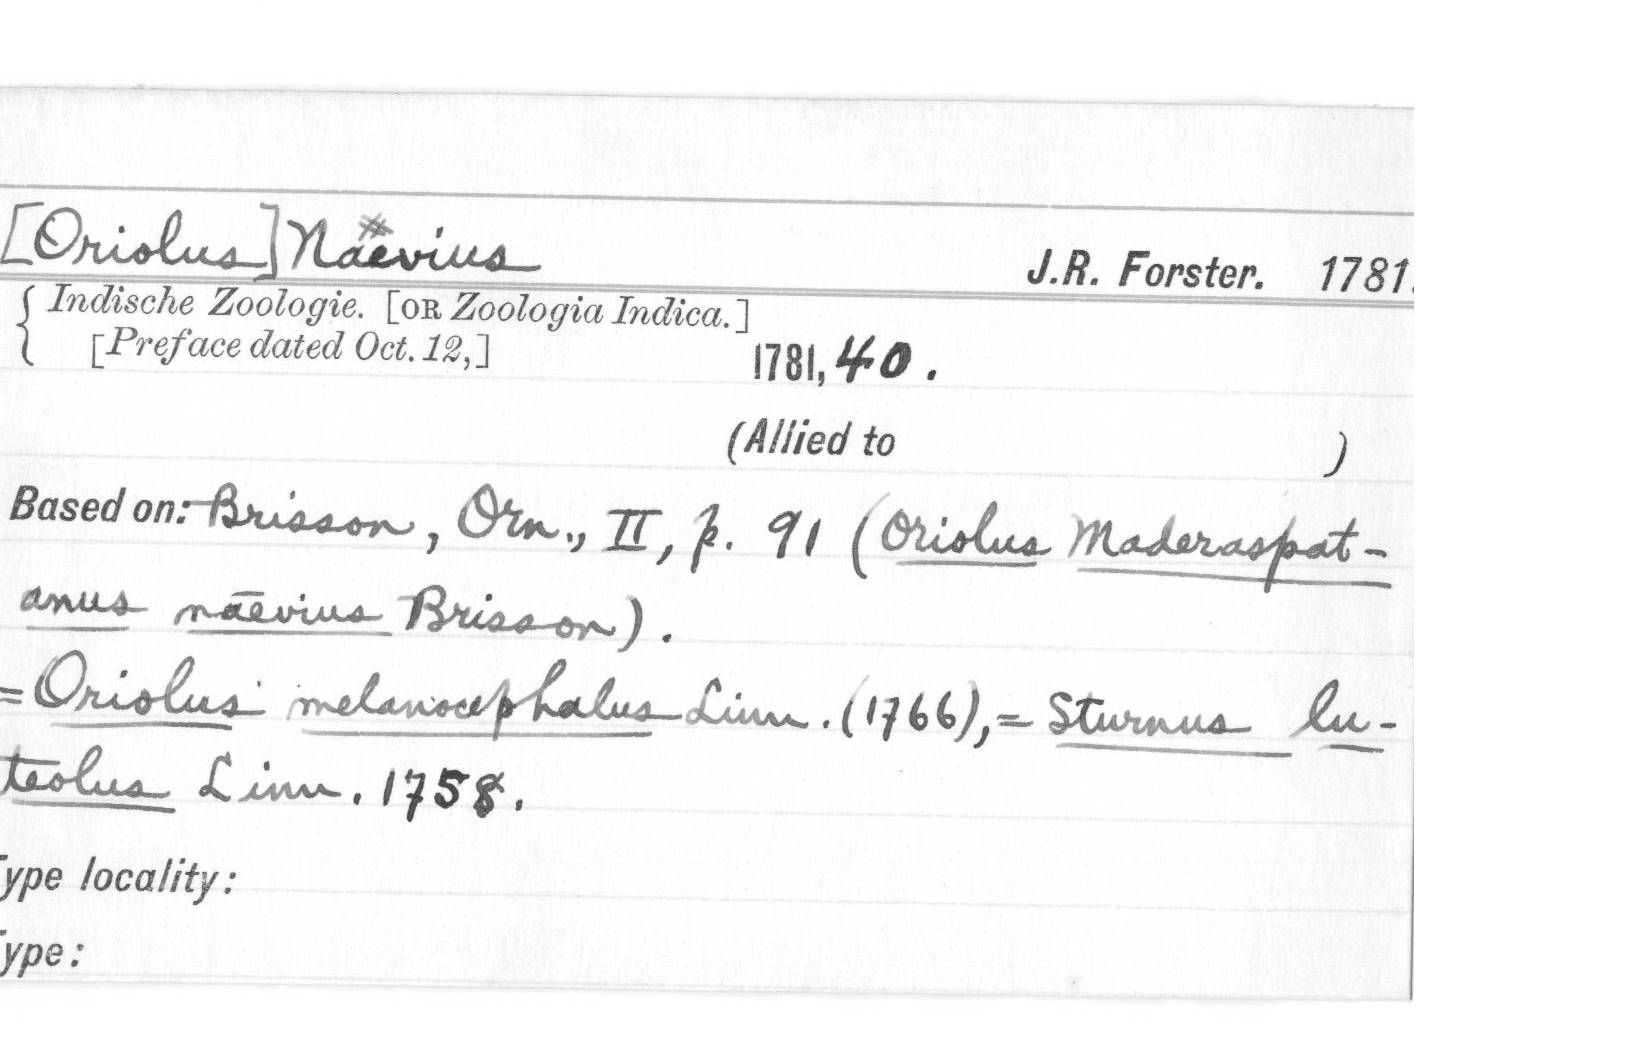 [Oriolus] Naevius J.R. Forster. 1781.
Indische Zoologie. [OR Zoologia Indica.]
[Preface dated Oct. 12,]
1781, 40.
(Allied to )
Based on: Brisson, Orn., II, p. 91 (Oriolus Maderaspat-
anus naevius Brisson).
=Oriolus melanocephalus Linn. (1766), = Sturnus lu-
teolus Linn. 1758.
Type locality:
Type: